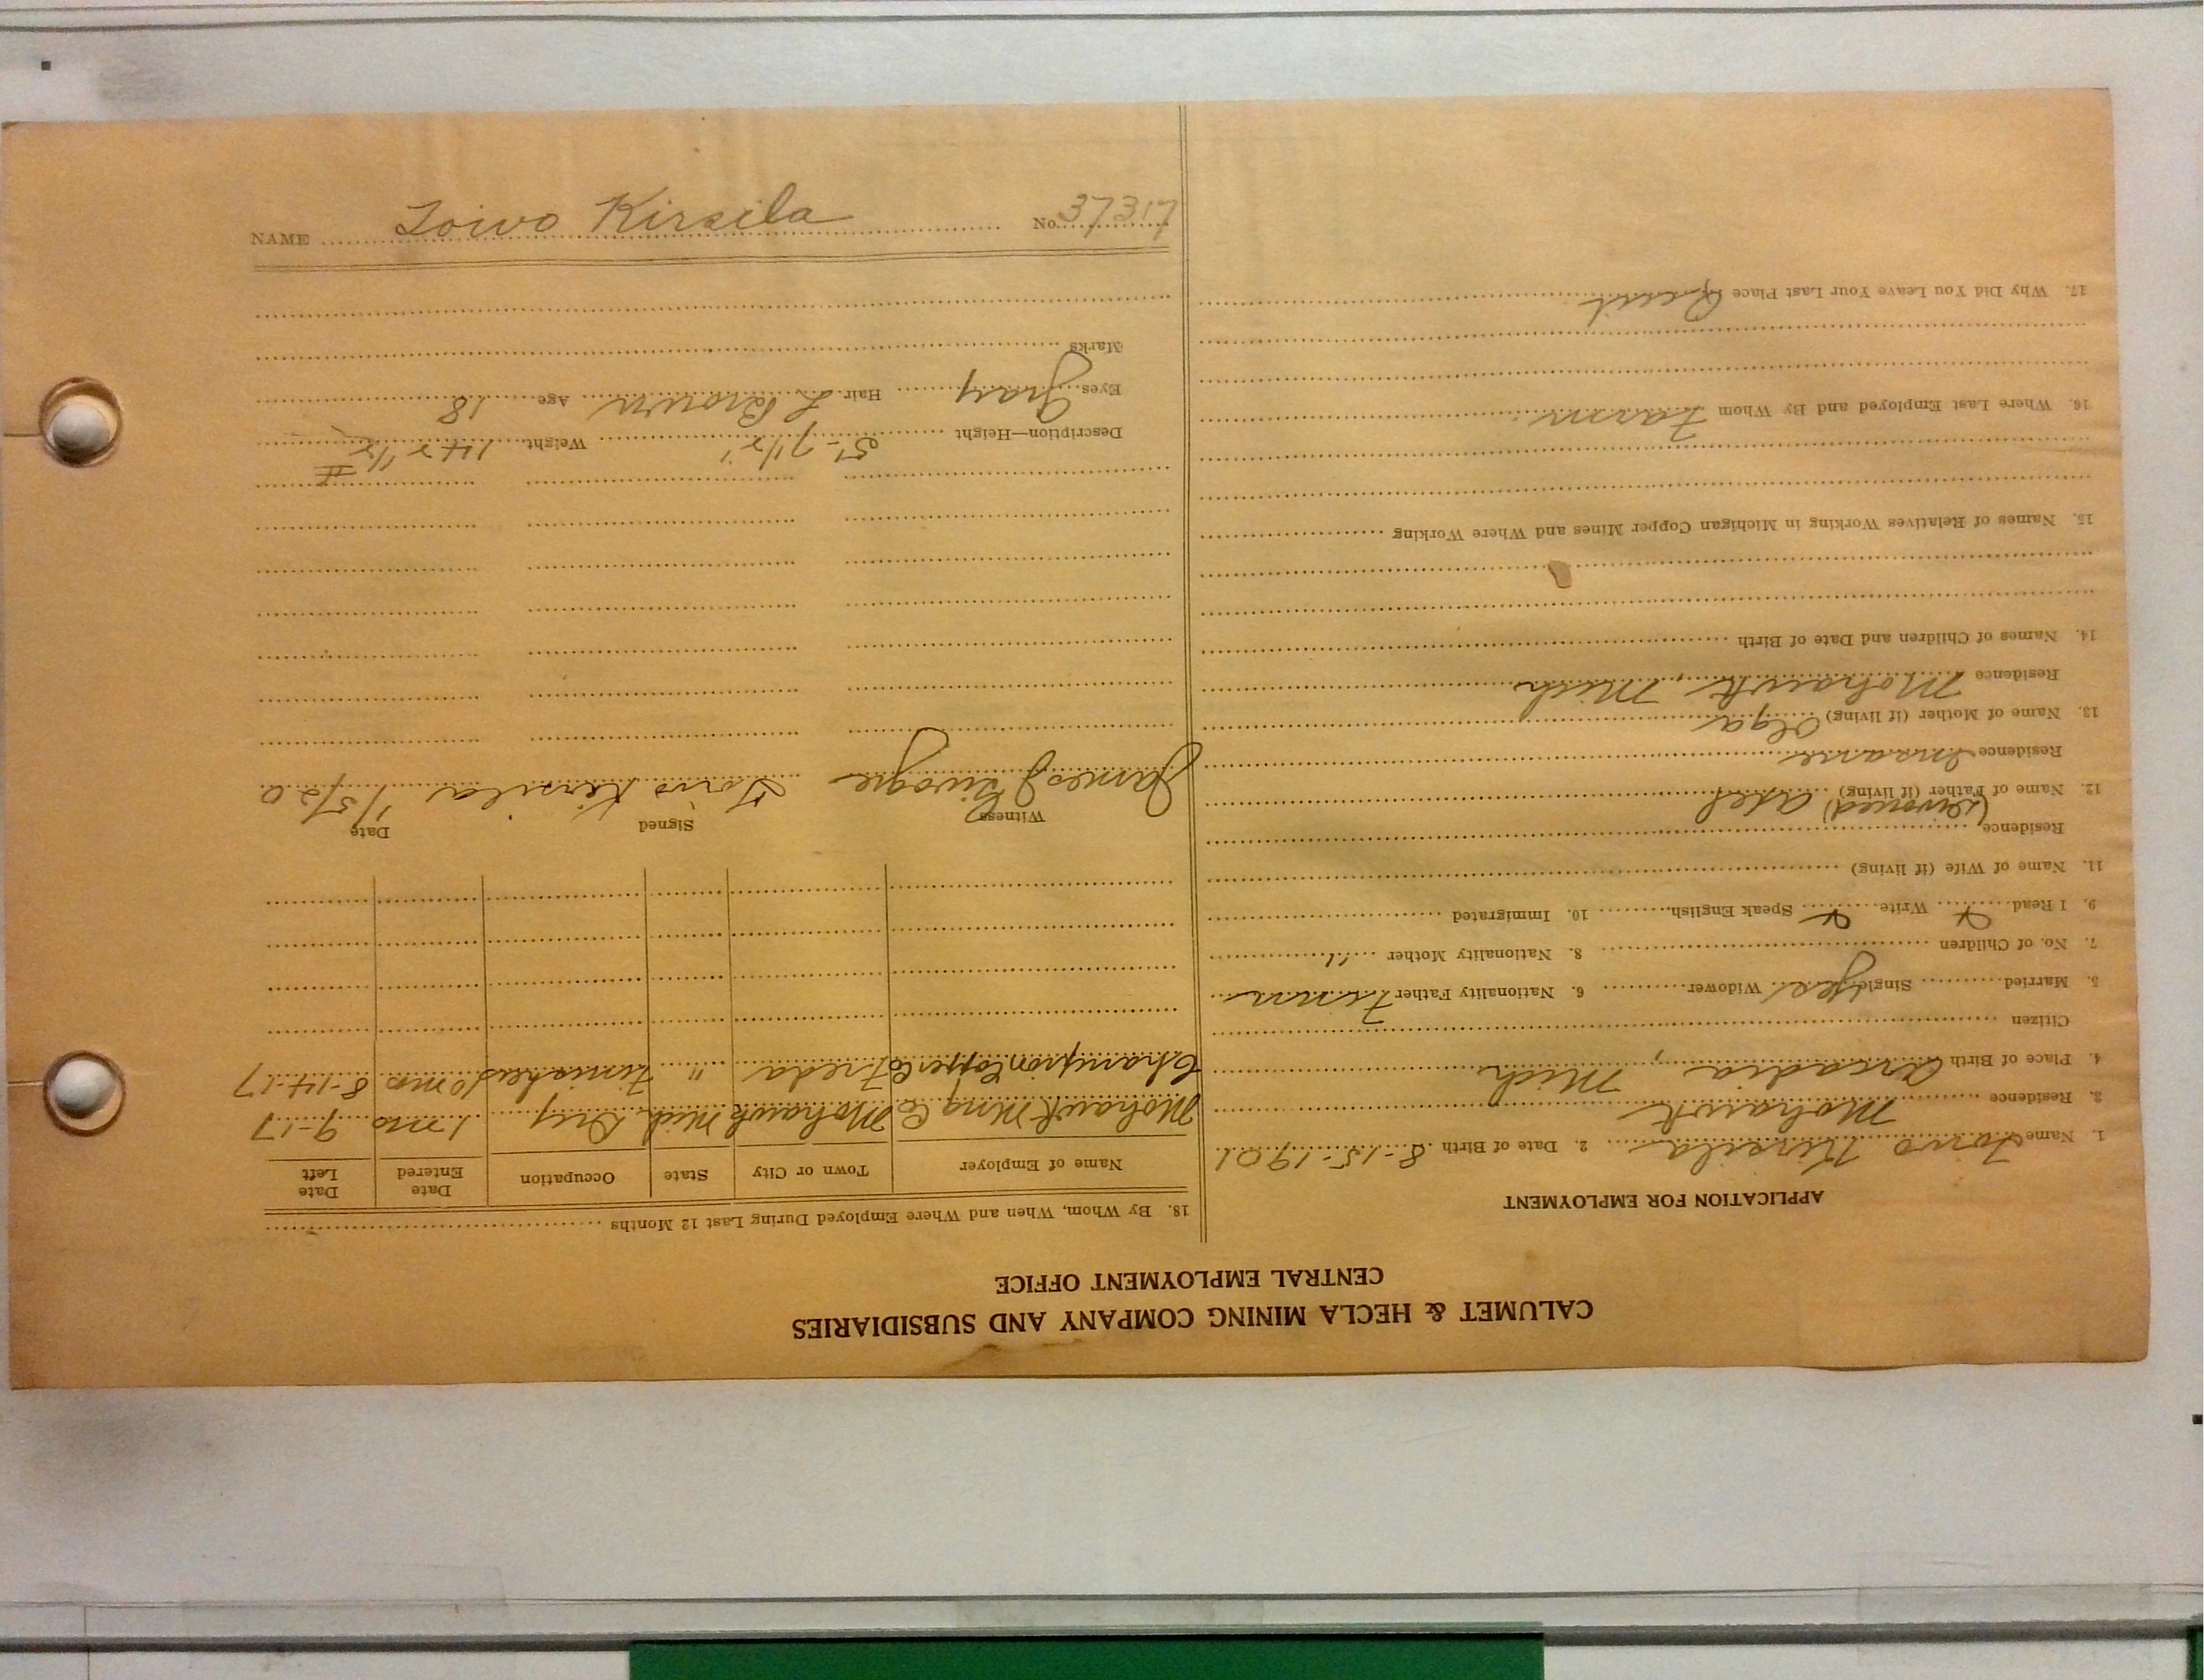 CALUMET & HECLA MINING COMPANY AND SUBSIDIARIES
CENTRAL EMPLOYMENT OFFICE
APPLICATION FOR EMPLOYMENT
1. Name Toivo Kirsila 2. Date of Birth 8-15-1901
3. Residence Mohawk
4. Place of Birth Arcadia, Mich
Citizen
5. Married Single yes Widower 6. Nationality Father Finn
7. No. of Children 8. Nationality Mother "
9. I Read Write Speak English 10. Immigrated
11. Name of Wife (if living)
Residence
12. Name of Father (if living) (Divorced) Axel
Residence Insane
13. Name of Mother (if living) Olga
Residence Mohawk, Mich
14. Names of Children and Date of Birth
15. Names of Relatives Working in Michigan Copper Mines and Where Working
16. Where Last Employed and By Whom Farm
17. Why Did You Leave Your Last Place Quit
18. By Whom, When and Where Employed During Last 12 Months
Name of Employer Town or City State Occupation Date Entered Date Left
Mohawk Mng Co Mohawk Mich Dry 1 mo 9-17
Champion Copper Co Freda " 10 mo 8-14-17
Witness Signed Date
James Toivo Kirsila 1/5/20
Description—Height 5'-7 1/2" Weight 142 1/2 #
Eyes Gray Hair L. Brown Age 18
Marks
NAME Toivo Kirsila No. 37317